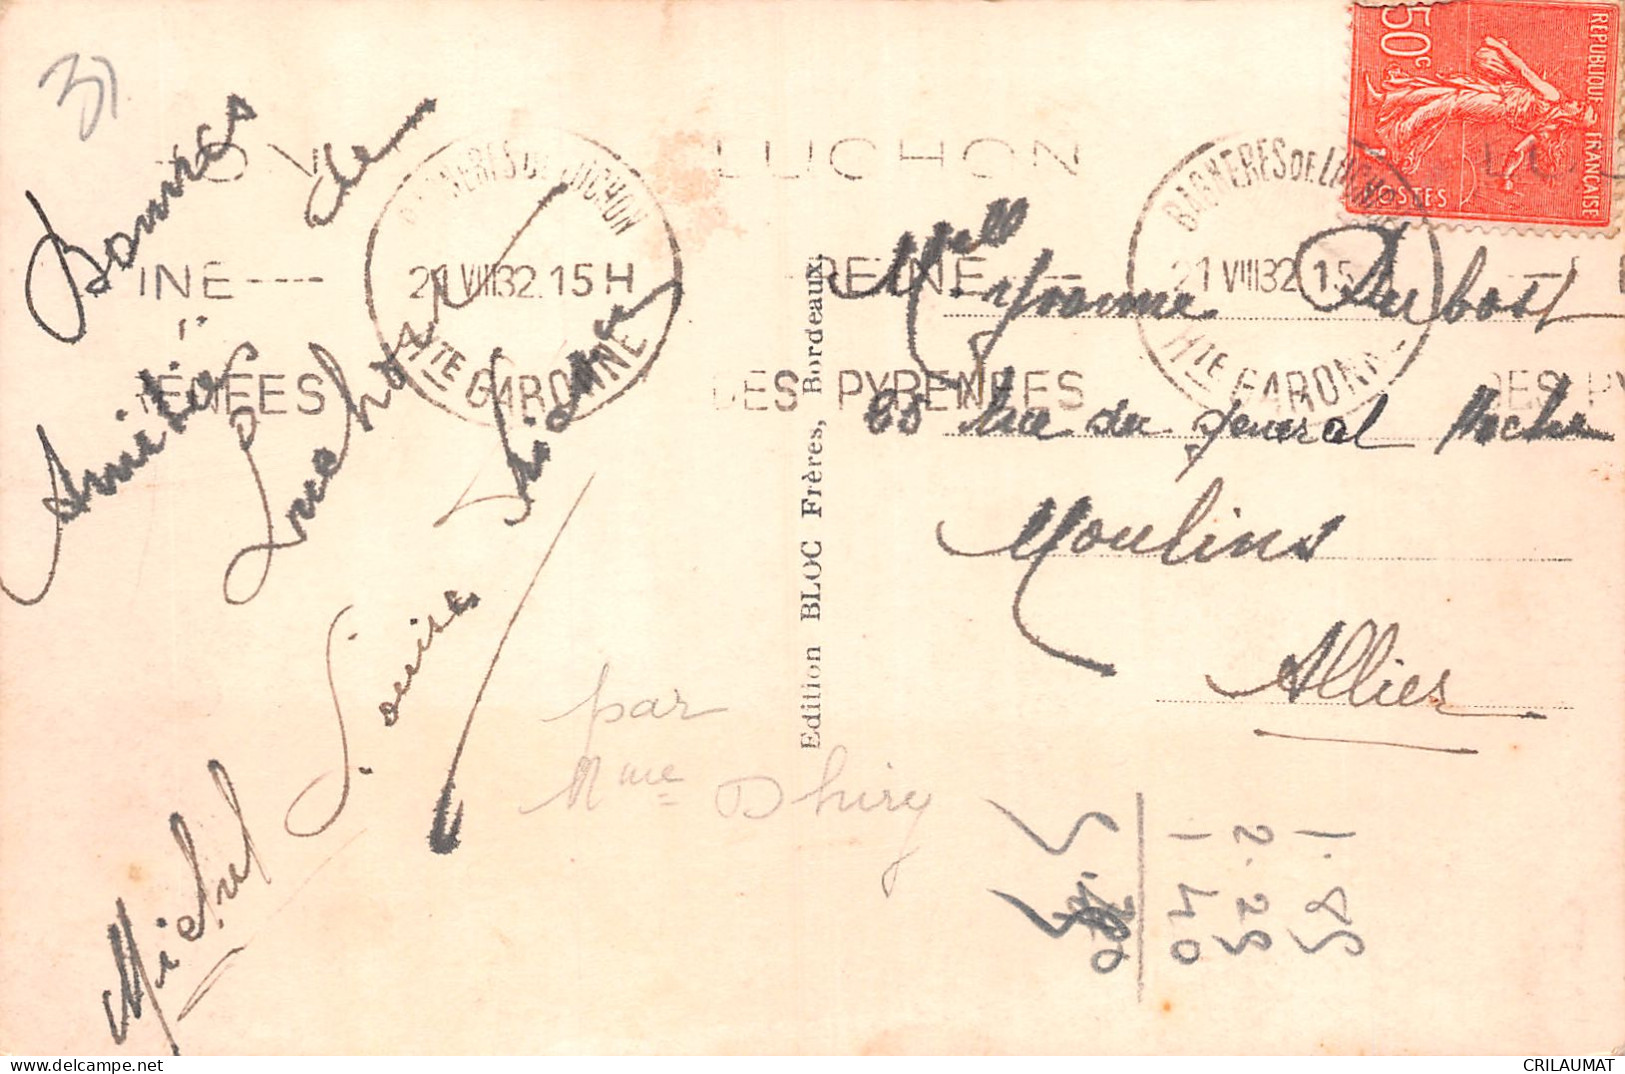 31
Bonnes
Amitiés de
Luchon
Louise
Michel
par
Mme Thiry
BAGNERES DE LUCHON
21 VIII 32 15 H
HTE GARONNE
INE ----
RÉNÉES
LUCHON
REINE ----
DES PYRENEES
BAGNERES DE LUCHON
21 VIII 32 15
HTE GARONNE
DES PY
Edition BLOC Frères, Bordeaux.
50c
REPUBLIQUE FRANÇAISE
POSTES
Mell Yvonne Dubost
65 Rue du général Hoche
Moulins
Allier
1.85
2.25
1 40
CRILAUMAT